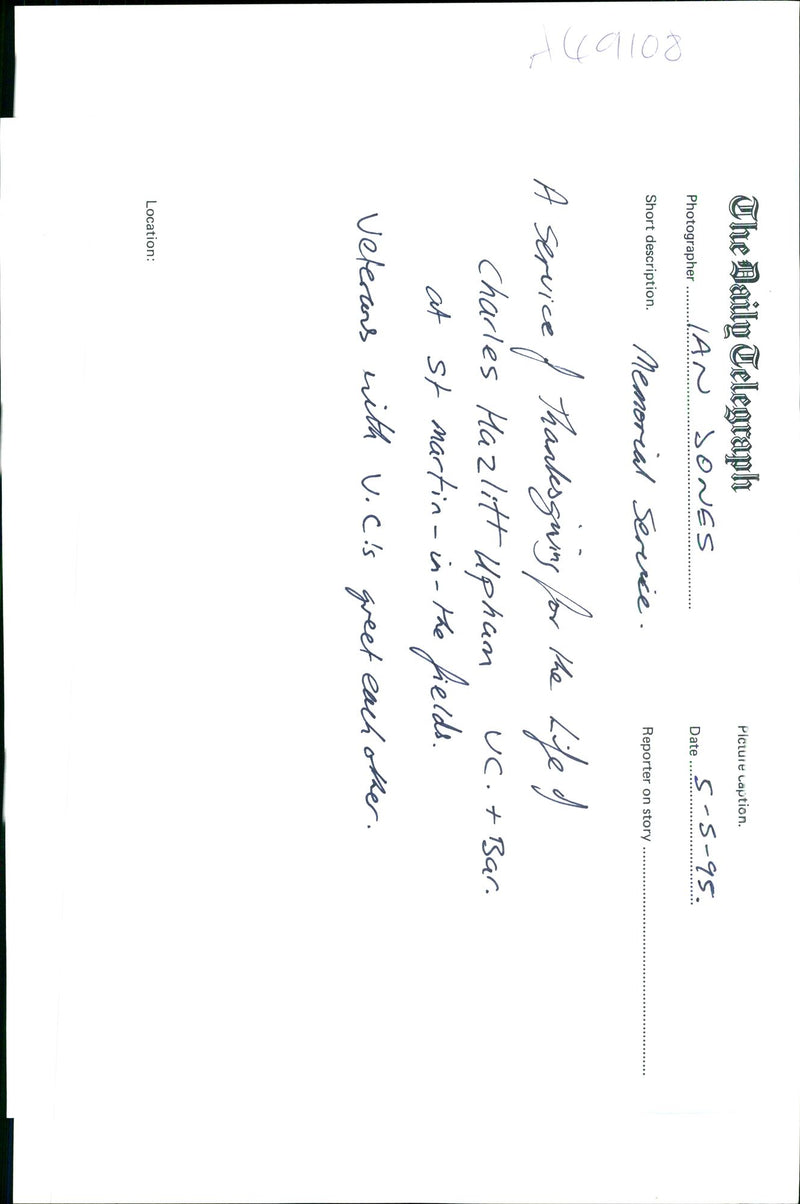 A49108
The Daily Telegraph
Picture caption.
Photographer IAN JONES
Date 5-5-95.
Short description. Memorial Service.
Reporter on story
A Service of Thanksgiving for the Life of
Charles Hazlitt Upham VC. + Bar.
at St Martin-in-the fields.
Veterans with V.C.'s greet each other.
Location: